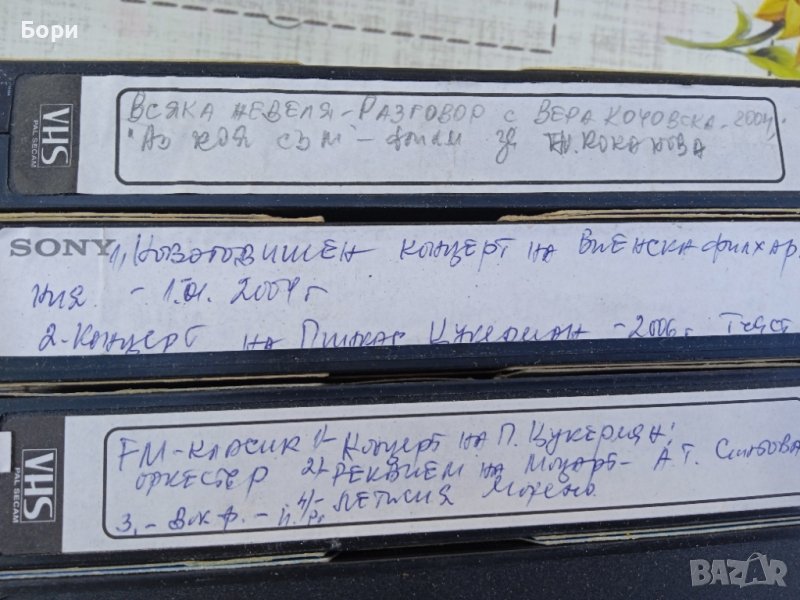 Бори
VHS
PAL SECAM
ВСЯКА НЕДЕЛЯ - РАЗГОВОР С ВЕРА КОЧОВСКА - 2004
"АЗ КОЯ СЪМ" - ФИЛМ ЗА КОКАНОВА
SONY
1, НОВОГОДИШЕН КОНЦЕРТ НА ВИЕНСКА ФИЛХАР
НИЯ - 1.01. 2004 г
2 - КОНЦЕРТ НА ПИНКАС ЦУКЕРМАН - 2006 г. I част
VHS
PAL SECAM
FM - КЛАСИК 1/- КОНЦЕРТ НА П. ЦУКЕРМАН
ОРКЕСТЪР 2/- РЕКВИЕМ НА МОЦАРТ - А. Т. СИНТОВА
3, - - 4/- ЛЕТИСИЯ МОРЕНО
BAZAR